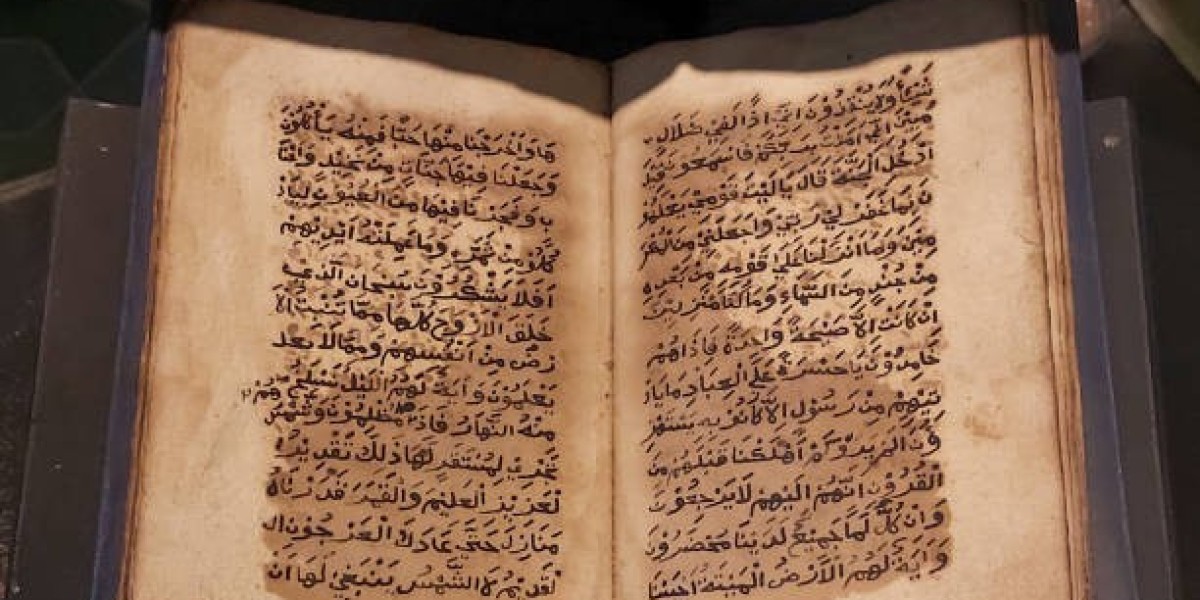 شَيْأً وَلَا يُنْقِذُونَ اِنِّي اِذًا لَفِي ضَلَالٍ
مُبِينٍ اِنِّي اٰمَنْتُ بِرَبِّكُمْ فَاسْمَعُونِ قِيلَ
ادْخُلِ الْجَنَّةَ قَالَ يَا لَيْتَ قَوْمِي يَعْلَمُو
نَ بِمَا غَفَرَ لِي رَبِّي وَاجَعَلَنِي مِنَ الْمُكْرَ
مِينَ وَمَا اَنْزَلْنَا عَلَىٰ قَوْمِهِ مِنْ بَعْدِهِ
مِنْ جُنْدٍ مِنَ السَّمَاءِ وَمَا كُنَّا مُنْزِلِينَ
اِنْ كَانَتْ اِلَّا صَيْحَةً وَاحِدَةً فَاِذَا هُمْ
خَامِدُونَ يَا حَسْرَةً عَلَى الْعِبَادِ مَا يَا
تِيهِمْ مِنْ رَسُولٍ اِلَّا كَانُو بِهِ يَسْتَهْزِ
ؤُنَ اَلَمْ يَرَوْ كَمْ اَهْلَكْنَا قَبْلَهُمْ مِنَ
الْقُرُونِ اَنَّهُمْ اِلَيْهِمْ لَا يَرْجِعُونَ
وَاِنْ كُلٌّ لَمَّا جَمِيعٌ لَدَيْنَا مُحْضَرُونَ
وَاٰيَةٌ لَهُمُ الْاَرْضُ الْمَيْتَةُ اَحْيَيْنَا
هَا وَاَخْرَجْنَا مِنْهَا حَبًّا فَمِنْهُ يَأْكُلُونَ
وَجَعَلْنَا فِيهَا جَنَّاتٍ مِنْ نَخِيلٍ وَاَعْنَا
بٍ وَفَجَّرْنَا فِيهَا مِنَ الْعُيُونِ لِيَأْ
كُلُو مِنْ ثَمَرِهِ وَمَا عَمِلَتْهُ اَيْدِيهِمْ
اَفَلَا يَشْكُرُونَ سُبْحَانَ الَّذِي
خَلَقَ الْاَزْوَاجَ كُلَّهَا مِمَّا تُنْبِتُ الْاَ
رْضُ مِنْ اَنْفُسِهِمْ وَمِمَّا لَا يَعْلَمُ
يَعْلَمُونَ وَاٰيَةٌ لَهُمُ اللَّيْلُ نَسْلَخُ
مِنْهُ النَّهَارَ فَاِذَا هُمْ مُظْلِمُونَ وَالشَّمْسُ
تَجْرِي لِمُسْتَقَرٍّ لَهَا ذٰلِكَ تَقْدِيرُ
لْعَزِيزِ الْعَلِيمِ وَالْقَمَرَ قَدَّرْنَاهُ
مَنَازِلَ حَتَّىٰ عَادَ كَالْعُرْجُونِ ال
لْقَدِيمِ لَا الشَّمْسُ يَنْبَغِي لَهَا اَنْ